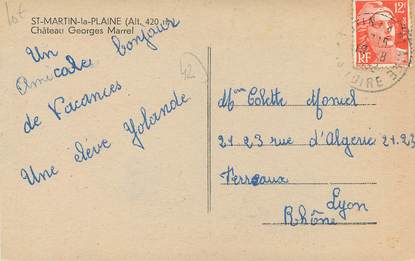 lot
ST-MARTIN-la-PLAINE (Alt. 420 m)
Château Georges Marrel
Un bonjour
Amicale
de Vacances
Une élève Yolande
42
12F
RF
LOIRE
Mme Colette Moniel
21 23 rue d'Algérie 21.23
Terreaux
Lyon
Rhône